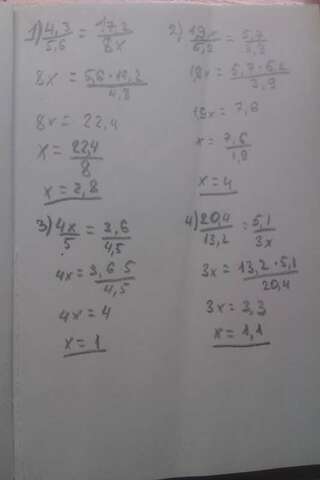 1) 4,3/5,6 = 17,2/8x
8x = 5,6·17,2/4,3
8x = 22,4
x = 22,4/8
x = 2,8
2) 1,9x/5,2 = 5,7/3,9
1,9x = 5,7·5,2/3,9
1,9x = 7,6
x = 7,6/1,9
x = 4
3) 4x/5 = 3,6/4,5
4x = 3,6 5/4,5
4x = 4
x = 1
4) 20,4/13,2 = 5,1/3x
3x = 13,2·5,1/20,4
3x = 3,3
x = 1,1